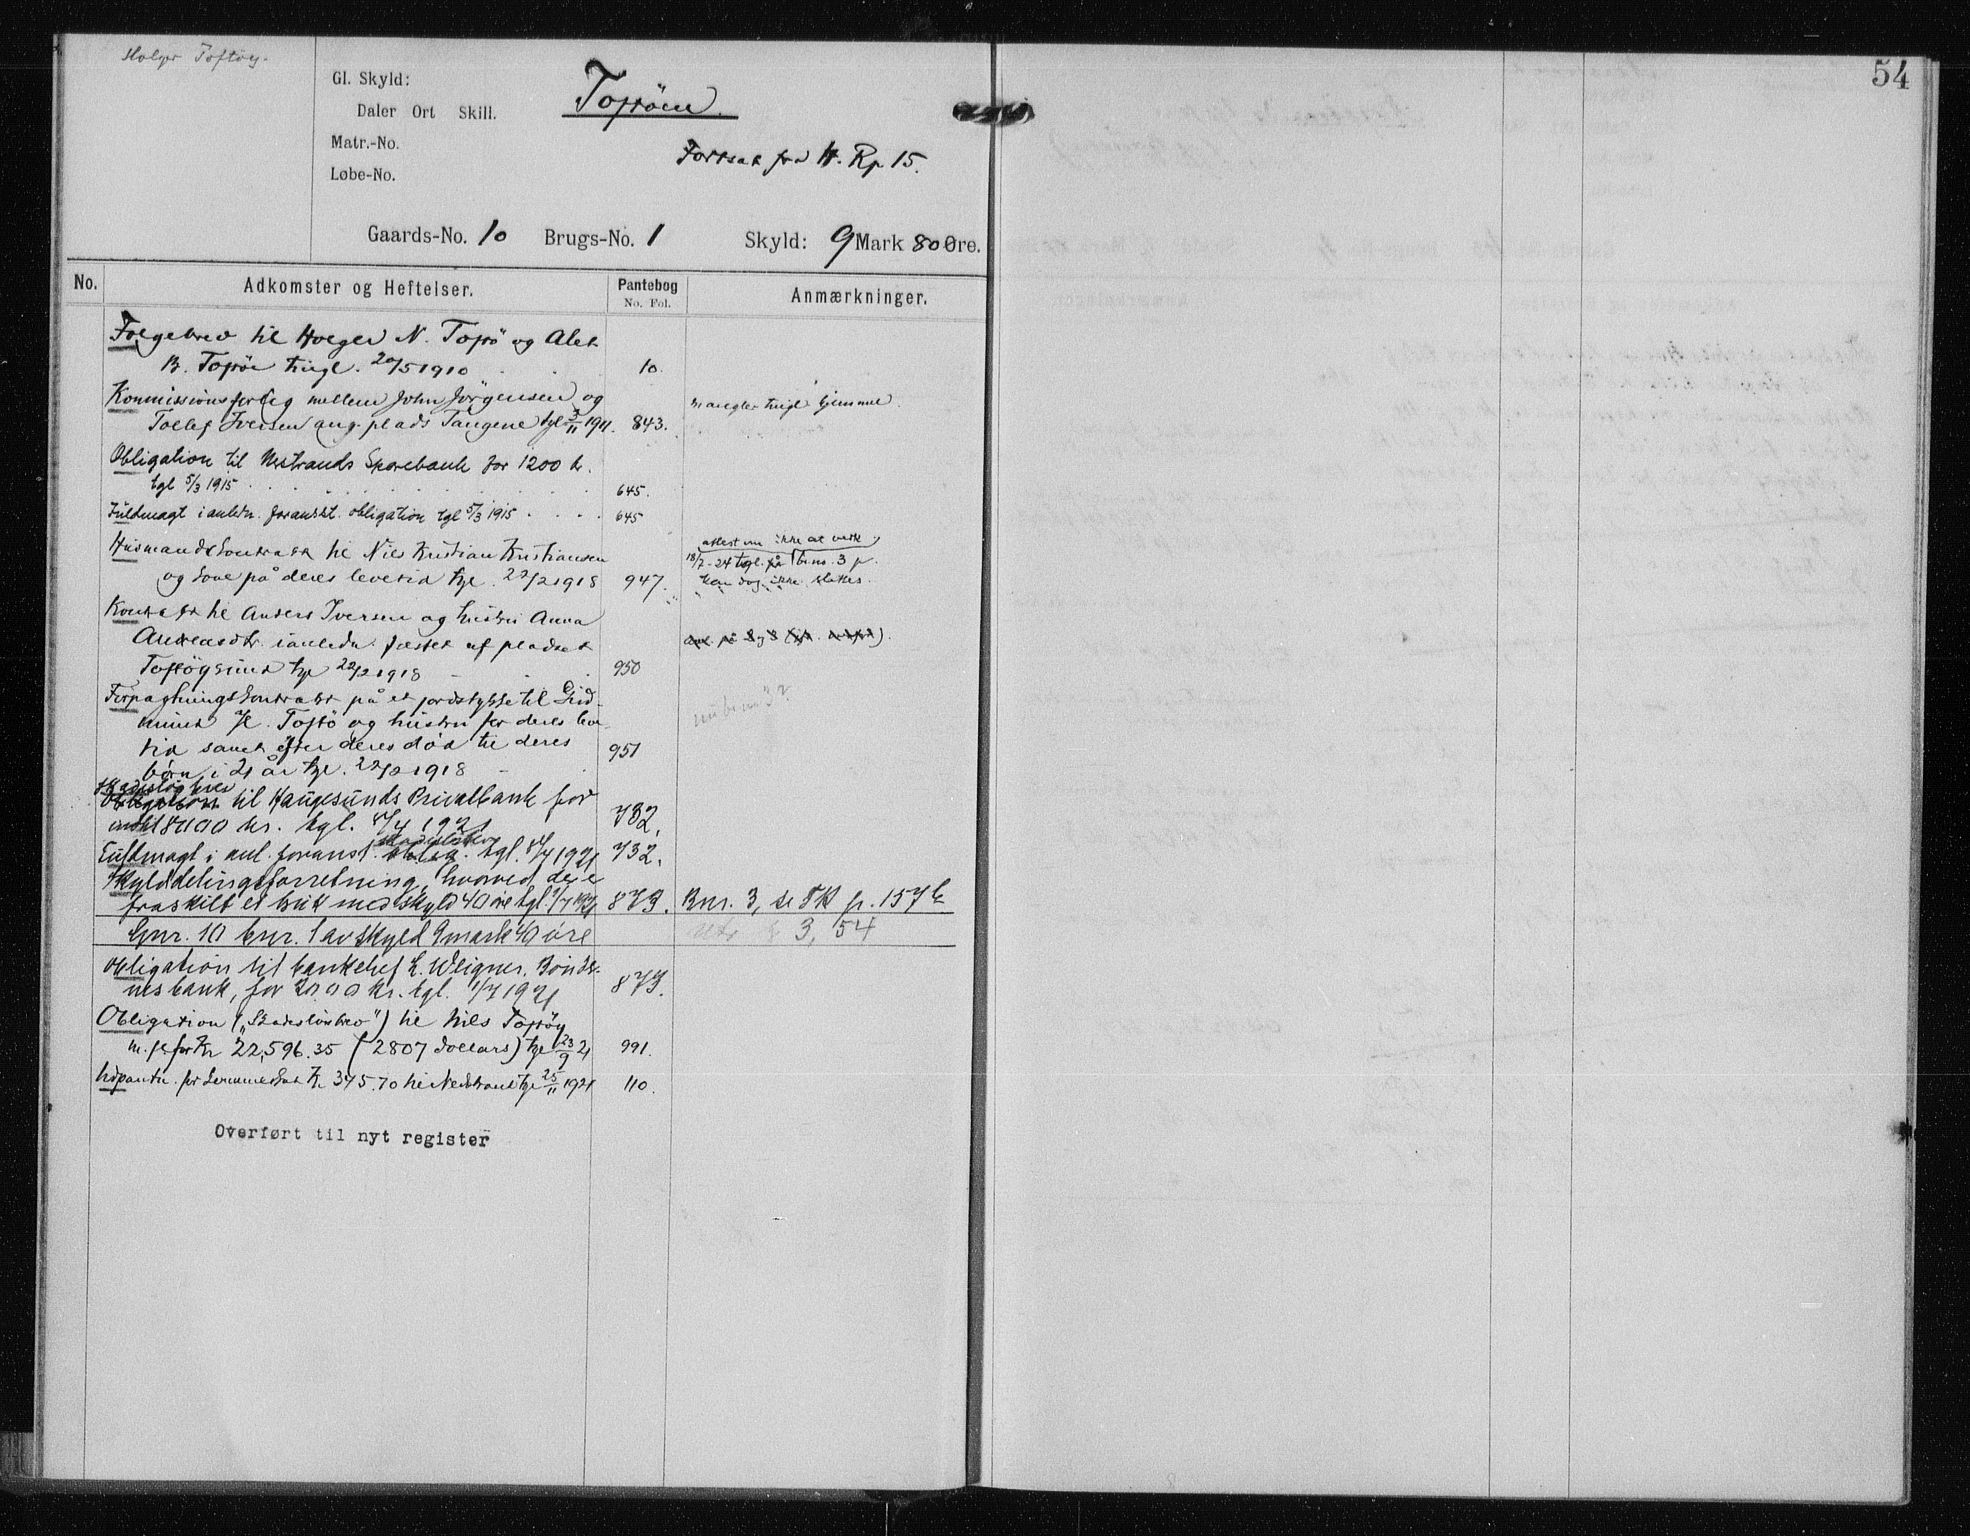 Holger Toftøy.
54
Gl. Skyld:
Daler Ort Skill.
Toftöen.
Matr.-No.
Fortsat fra H. Rp 15.
Løbe-No.
Gaards-No. 10 Brugs-No. 1 Skyld: 9 Mark 80 Øre.
No. Adkomster og Heftelser. Pantebog No. Fol. Anmærkninger.
Følgebrev til Holger N. Toftö og Alet
B. Toftöe tingl. 20/5 1910 10.
Kommissionsforlig mellem John Jörgensen og mangler tingl hjemmel.
Tollef Iversen ang. plads Tangene tgl 3/11 1911. 843.
Obligation til Nestrands Sparebank for 1200 kr.
tgl 5/3 1915 645.
Fuldmagt i anledn. foranstt. obligation tgl 5/3 1915 645
Husmandskontrakt til Nils Kristian Kristiansen
attest om ikke at
og kone på deres levetid tgl. 22/2 1918 947.
18/7-24 tgl. på bnr. 3 p.
kan dog ikke slettes.
Kontrakt til Anders Iversen og hustru Anna
Andreasdtr. i anledn. fæstet af pladset
Toftöysund tgl 22/2 1918 950
Forpagtningskontrakt på et jordstykke til Gud-
mund H. Toftö og hustru for deres leve-
tid samt efter deres död til deres 951
börn i 21 år tgl. 22/2 1918
Skadeslösbrev
Obligation til Haugesunds Privatbank for
indtil 8000 kr. tgl. 8/4 1921 732.
skadeslösbrev
Fuldmagt i anl. foranst. oblig. tgl. 8/4 1921 732.
Skylddelingsforretning, hvorved der er
fraskilt et bruk med skyld 40 öre tgl. 1/7 1921 873. Bnr. 3, se p. 157 b
Gnr. 10 bnr. 1 av skyld 9 mark 40 öre 3, 54
Obligation til bankchef L. Weigner, Bönder-
nes bank, for 2000 kr. tgl. 1/7 1921 873.
Obligation ("Skadeslösbrev") til Nils Toftöy
m. fl for Kr 22,596.35 (2807 dollars) tgl 23/9 21 991.
Udpantn. for kommuneskat Kr 345.70 til Nedstrand tgl 25/11 1921 110.
Overført til nyt register